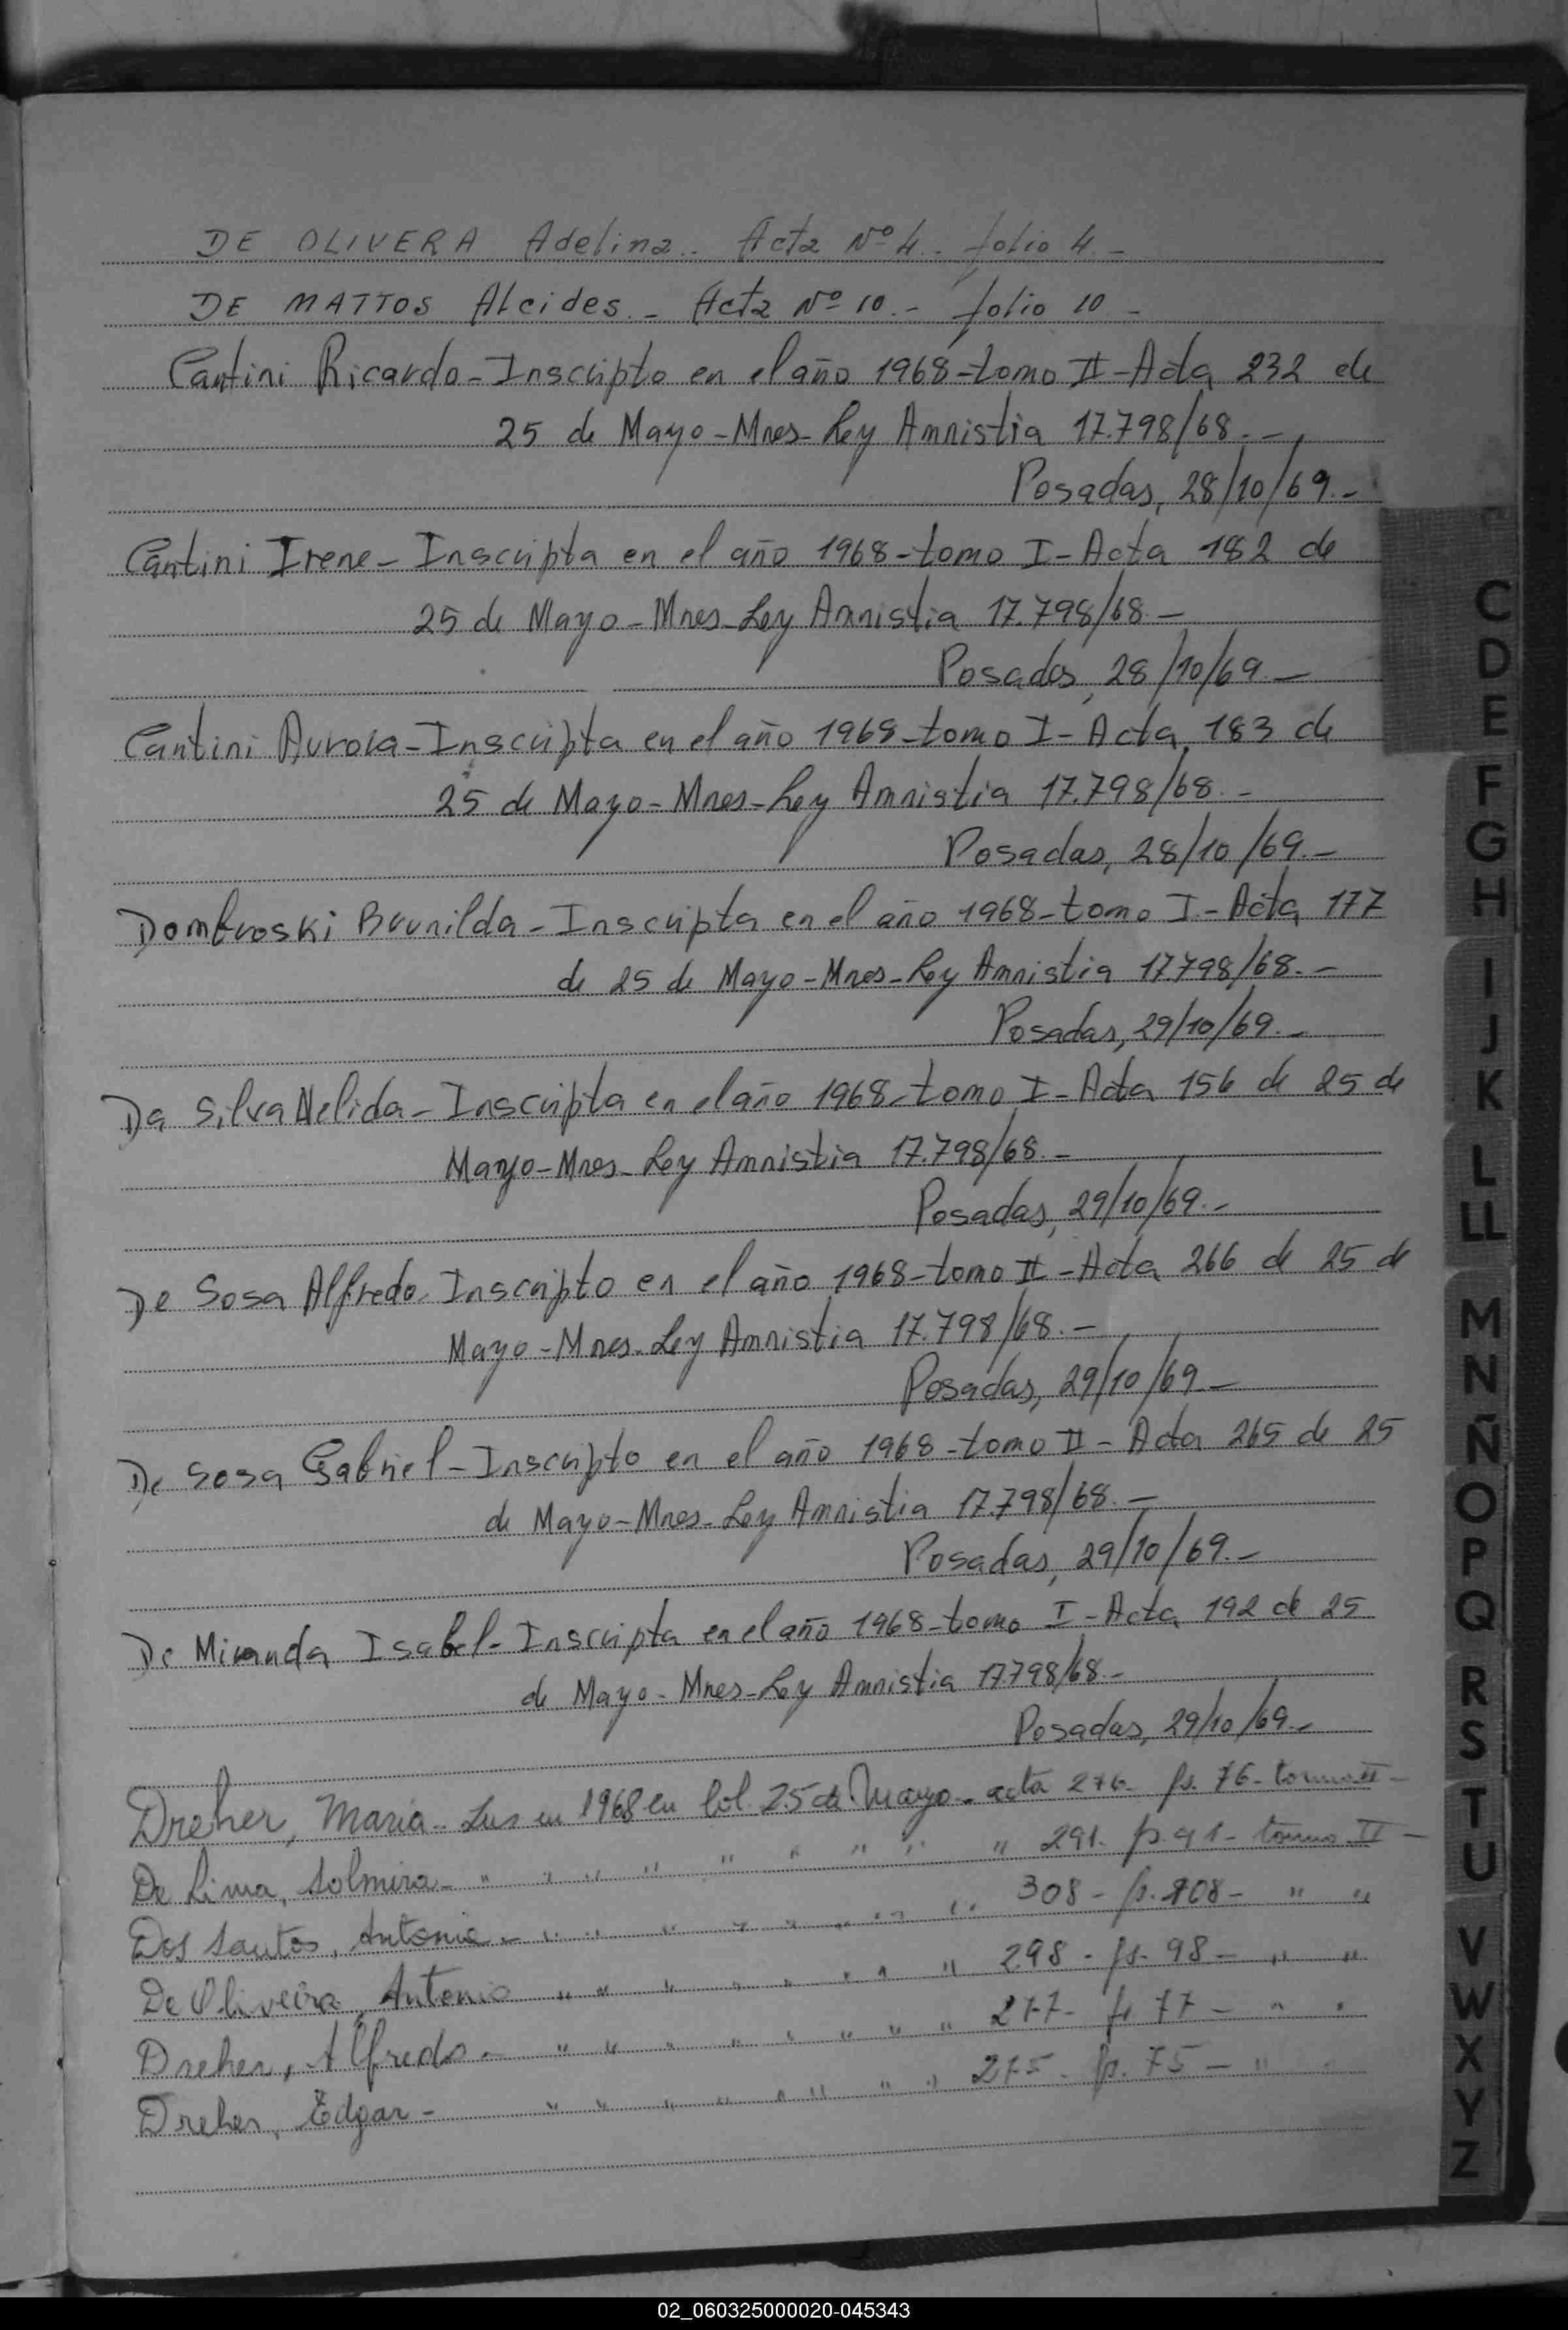 DE OLIVERA Adelina.. Acta Nº 4. folio 4.-
DE MATTOS Alcides.- Acta Nº 10.- folio 10.-
Cantini Ricardo-Inscripto en el año 1968-tomo II-Acta 232 de
25 de Mayo-Mnes-Ley Amnistia 17.798/68.-
Posadas, 28/10/69.-
Cantini Irene-Inscripta en el año 1968-tomo I-Acta 182 de
25 de Mayo-Mnes-Ley Amnistia 17.798/68.-
Posadas, 28/10/69.-
Cantini Aurora-Inscripta en el año 1968-tomo I-Acta 183 de
25 de Mayo-Mnes-Ley Amnistia 17.798/68.-
Posadas, 28/10/69.-
Dombroski Brunilda-Inscripta en el año 1968-tomo I-Acta 177
de 25 de Mayo-Mnes-Ley Amnistia 17.798/68.-
Posadas, 29/10/69.-
Da Silva Nelida-Inscripta en el año 1968-tomo I-Acta 156 de 25 de
Mayo-Mnes-Ley Amnistia 17.798/68.-
Posadas, 29/10/69.-
De Sosa Alfredo-Inscripto en el año 1968-tomo II-Acta 266 de 25 de
Mayo-Mnes-Ley Amnistia 17.798/68.-
Posadas, 29/10/69.-
De Sosa Gabriel-Inscripto en el año 1968-tomo II-Acta 265 de 25
de Mayo-Mnes-Ley Amnistia 17.798/68.-
Posadas, 29/10/69.-
De Miranda Isabel-Inscripta en el año 1968-tomo I-Acta 192 de 25
de Mayo-Mnes-Ley Amnistia 17.798/68.-
Posadas, 29/10/69.-
Dreher, Maria- Ins en 1968 en Col. 25 de Mayo- acta 276- fs. 76- tomo II-
De Lima, Solmira- " " " " " " " " " 291- fs. 91- tomo II-
Dos Santos, Antonio- " " " " " " " " 308- fs. 108- " "
De Oliveira, Antonio " " " " " " " " 298- fs. 98- " "
Dreher, Alfredo- " " " " " " " " 277- fs 77- " "
Dreher, Edgar- " " " " " " " " 275- fs. 75- " "
C
D
E
F
G
H
I
J
K
L
LL
M
N
Ñ
O
P
Q
R
S
T
U
V
W
X
Y
Z
02_060325000020-045343